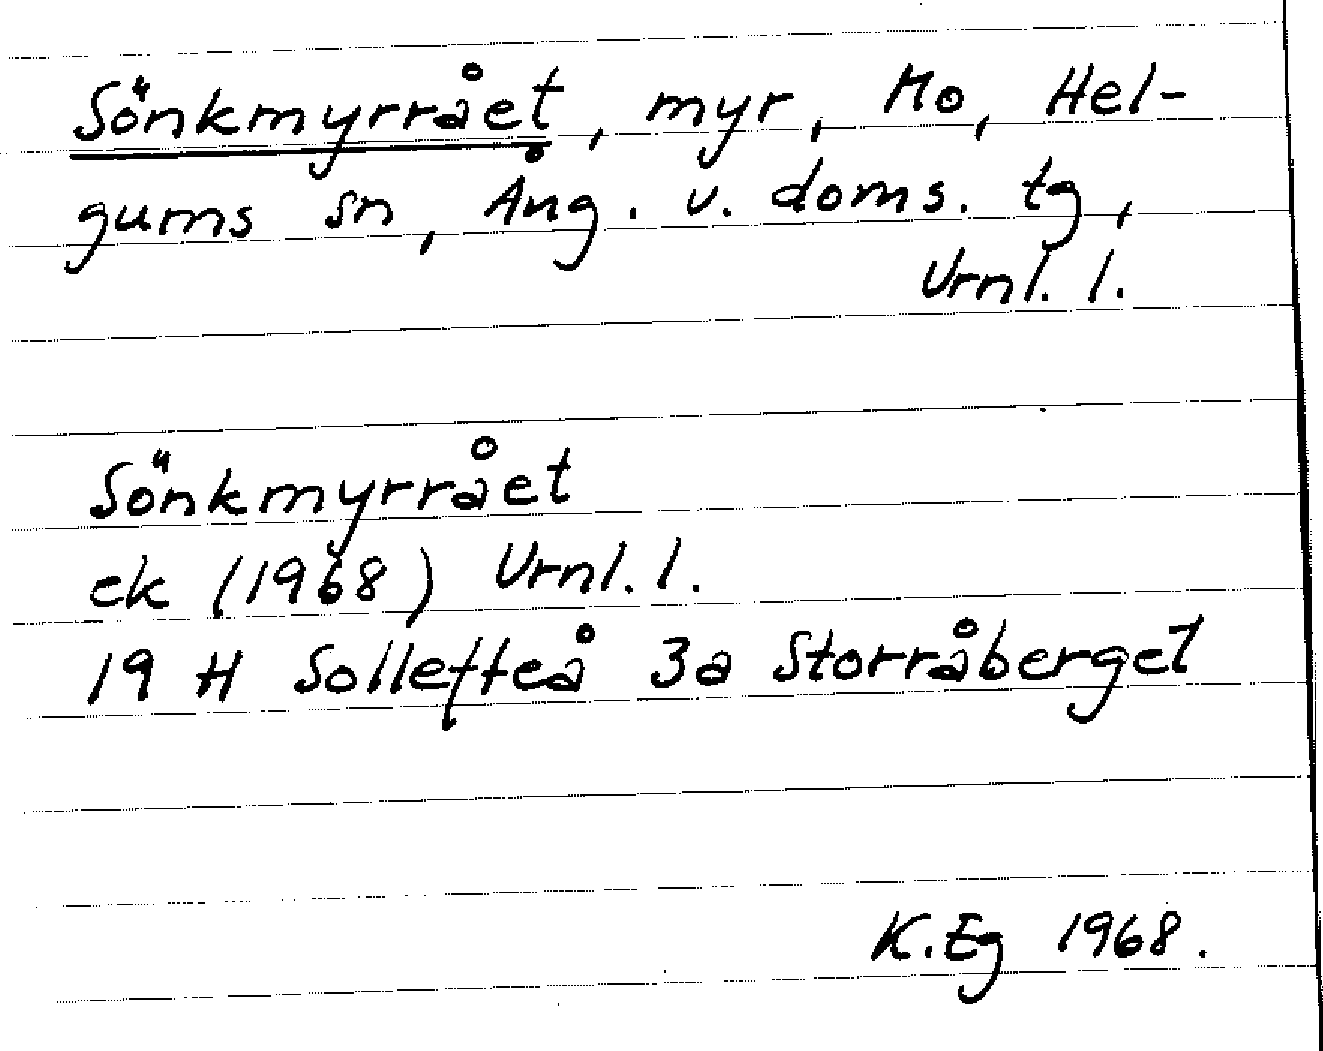 Sönkmyrrået, myr, Mo, Hel-
gums sn, Ång. v. doms. tg,
Urnl. l.
Sönkmyrrået
ek (1968) Urnl. l.
19 H Sollefteå 3a Storråberget
K.Eg 1968.